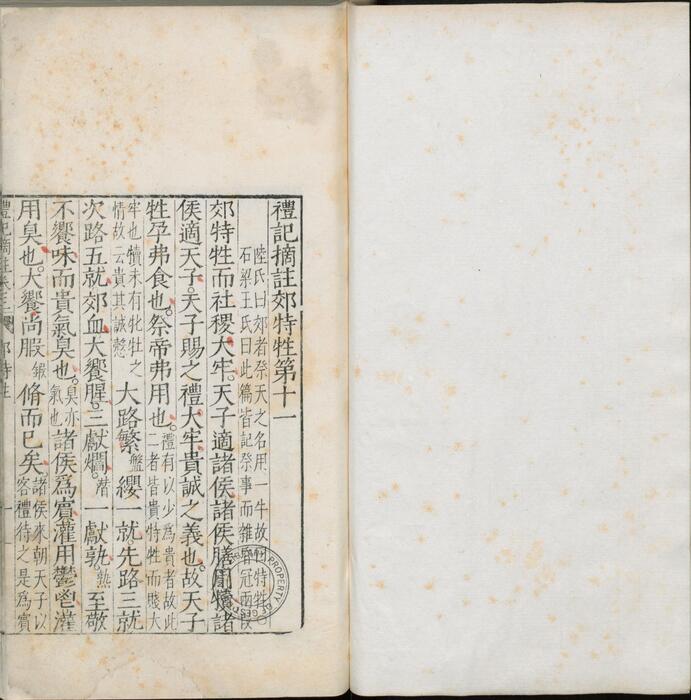 禮記摘註郊特牲第十一
陸氏曰郊者祭天之名用一牛故特牲
石梁王氏曰此篇皆記祭事而雜昏冠兩段
郊特牲而社稷大牢天子適諸侯諸侯膳用犢諸
侯適天子天子賜之禮大牢貴誠之義也故天子
牲孕弗食也祭帝弗用也禮有以少為貴者故此二者皆貴特牲而賤大
牢也犢未有牝牡之情故云貴其誠慤大路繁盤纓一就先路三就
次路五就郊血大饗腥三獻爓潛一獻孰熟至敬
不饗味而貴氣臭也臭亦氣也諸侯為賓灌用鬱鬯灌
用臭也大饗尚腶鍛脩而已矣諸侯來朝天子以客禮待之是為賓
禮記摘註 郊特牲 一
PROPERTY OF